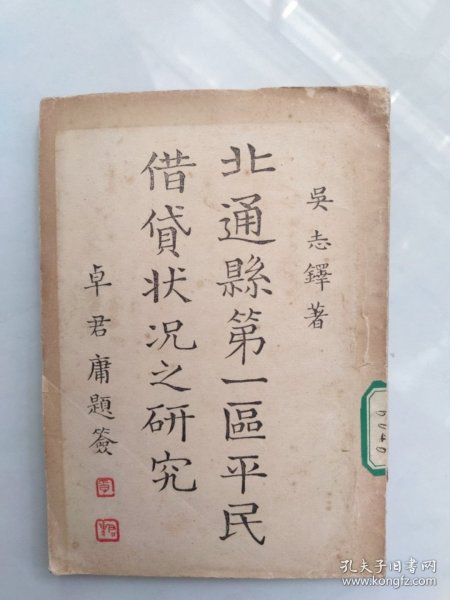 吳志鐸著
北通縣第一區平民
借貸狀况之研究
卓君庸題簽
孔夫子旧书网
www.kongfz.com